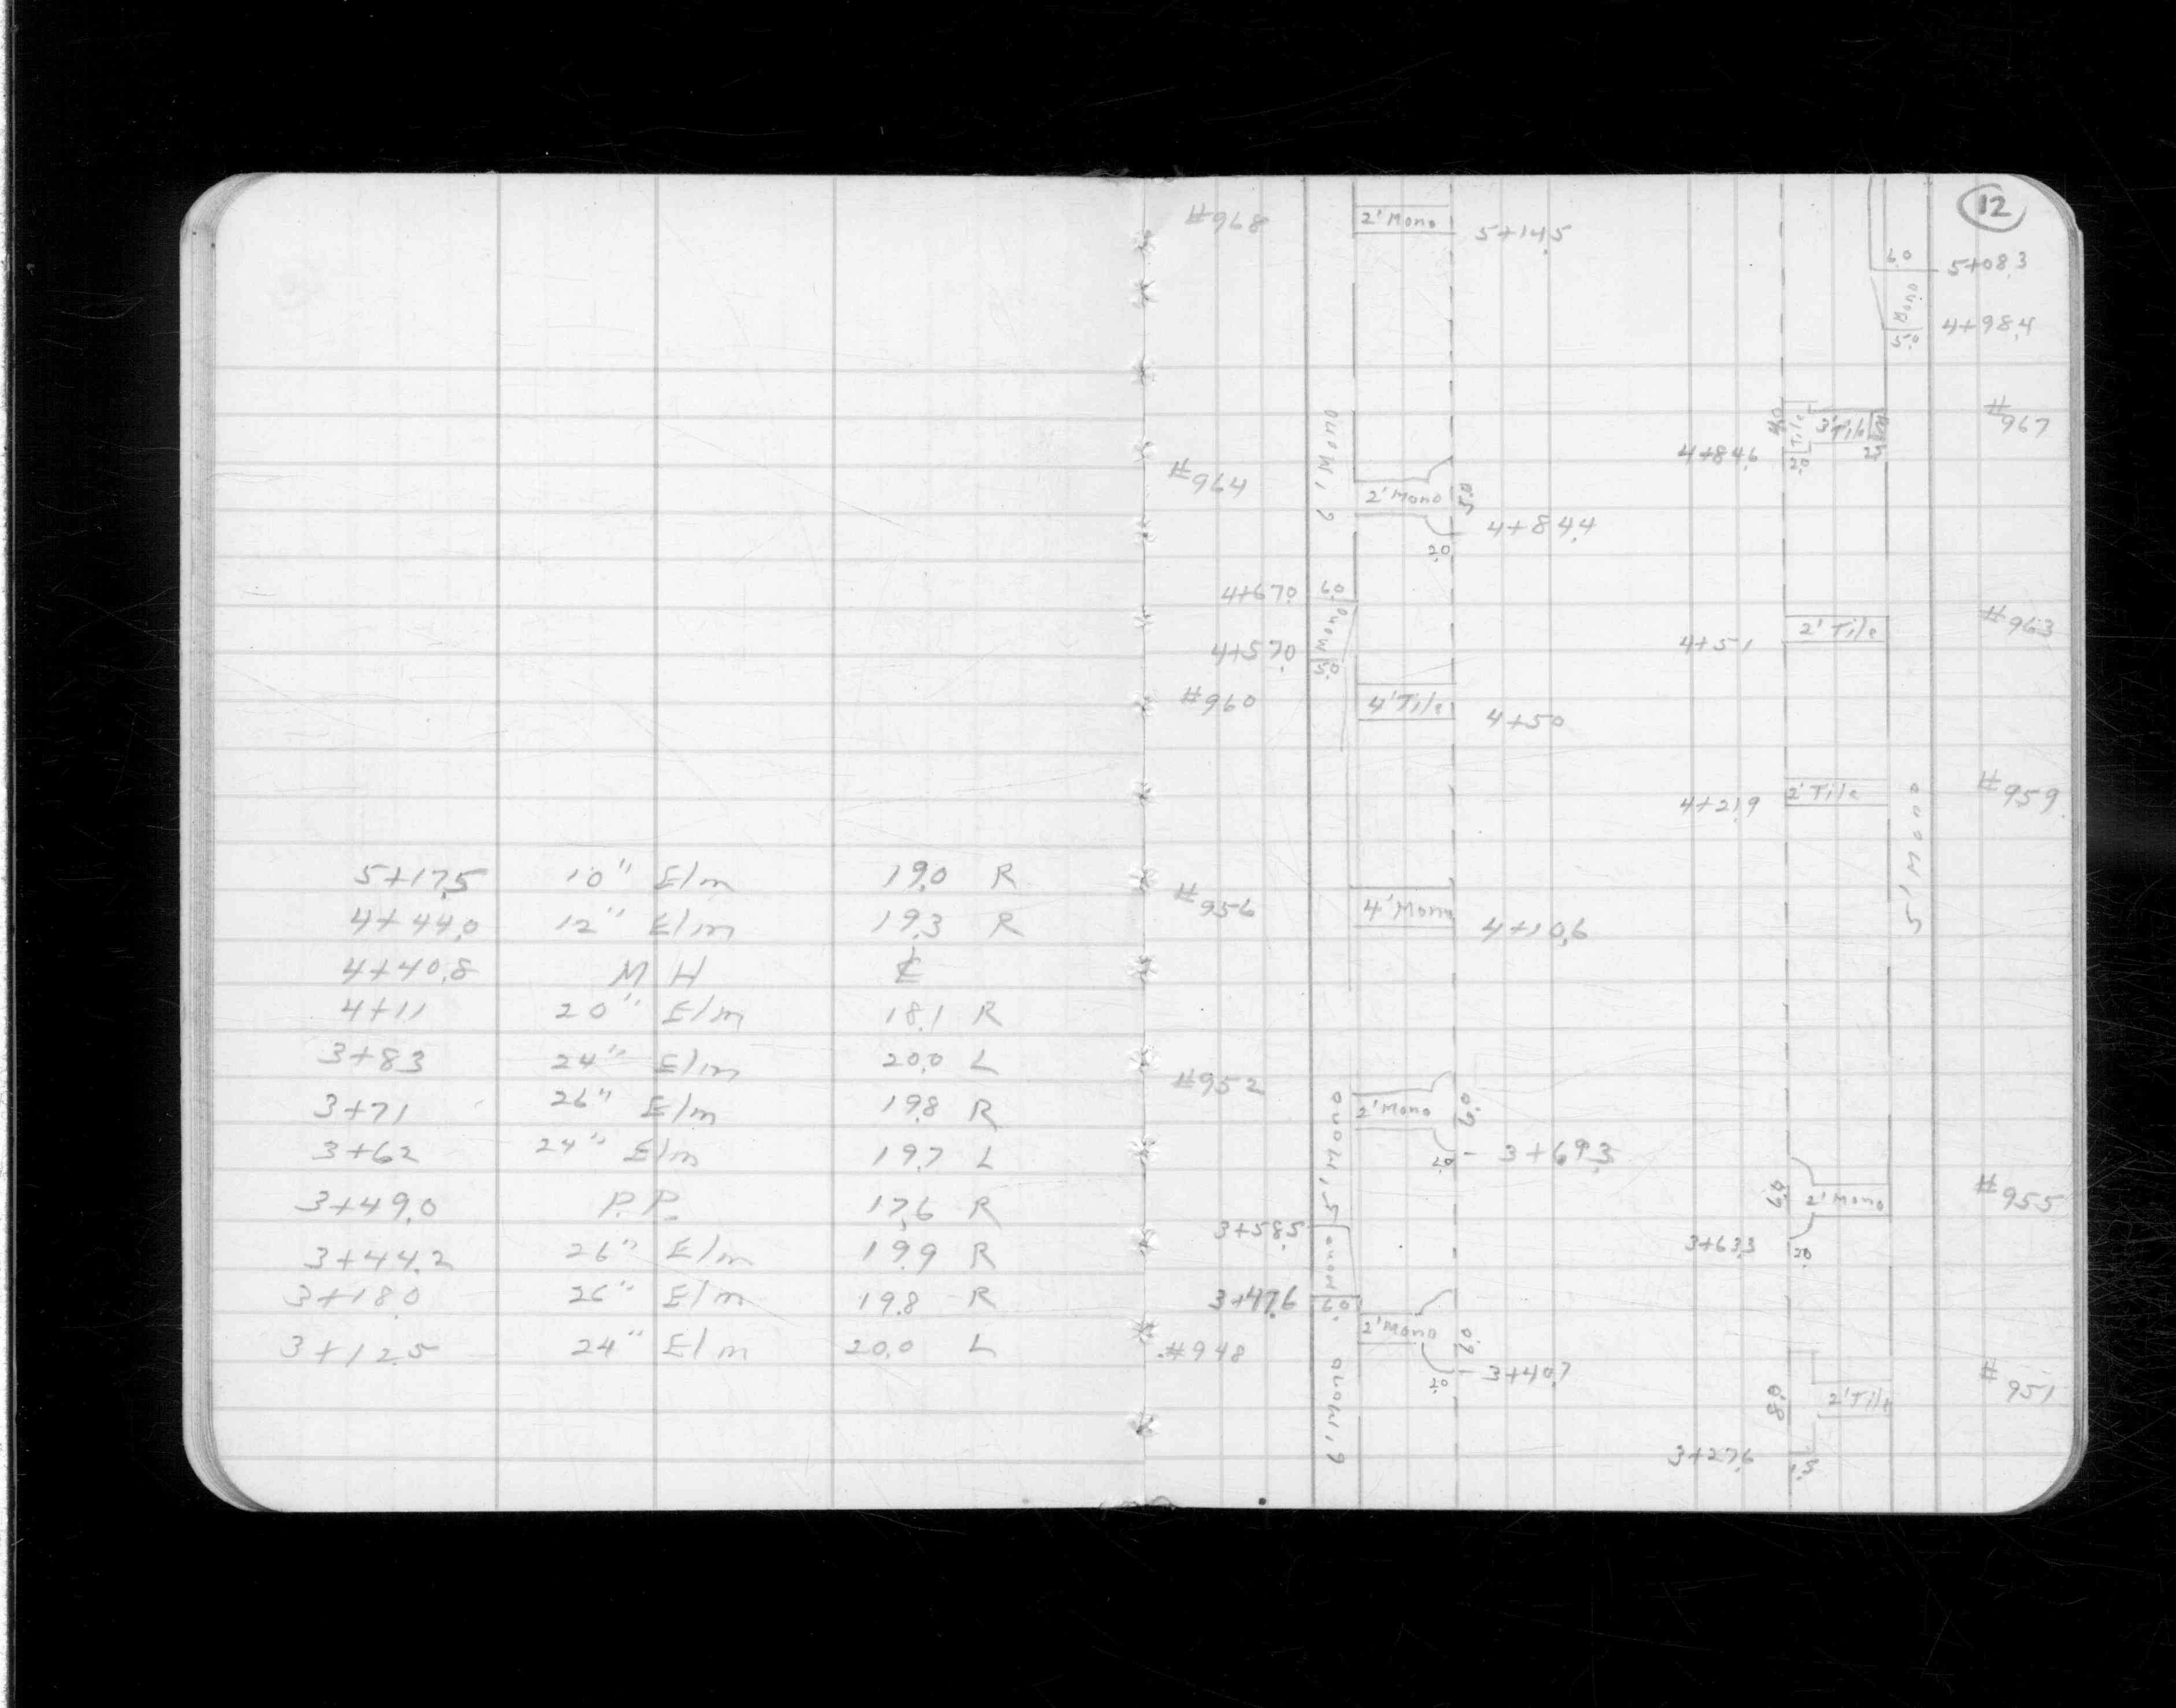 5+17.5 10" Elm 19.0 R
4+44.0 12" Elm 19.3 R
4+40.8 M H ℄
4+11 20" Elm 18.1 R
3+83 24" Elm 20.0 L
3+71 26" Elm 19.8 R
3+62 24" Elm 19.7 L
3+49.0 P.P. 17.6 R
3+44.2 26" Elm 19.9 R
3+18.0 26" Elm 19.8 R
3+12.5 24" Elm 20.0 L
12
#968 2' Mono 5+14.5
6.0 5+08.3
Mono
5.0 4+98.4
#967
4.0 Tile 3' Tile
4+84.6 2.0
6' Mono
#964 2' Mono 5.0
4+84.4
2.0
4+67.0 6.0
Mono
4+57.0 5.0
4+51 2' Tile #963
#960 4' Tile 4+50
4+21.9 2' Tile #959
5' Mono
#956 4' Mono 4+10.6
#952 2' Mono 6.0
2.0 3+69.3
5' Mono
6.0 2' Mono #955
3+63.3 2.0
3+58.5
Mono
3+47.6 6.0
#948 2' Mono 6.0
2.0 3+40.7
6' Mono
8.0 2' Tile #951
3+27.6 1.5